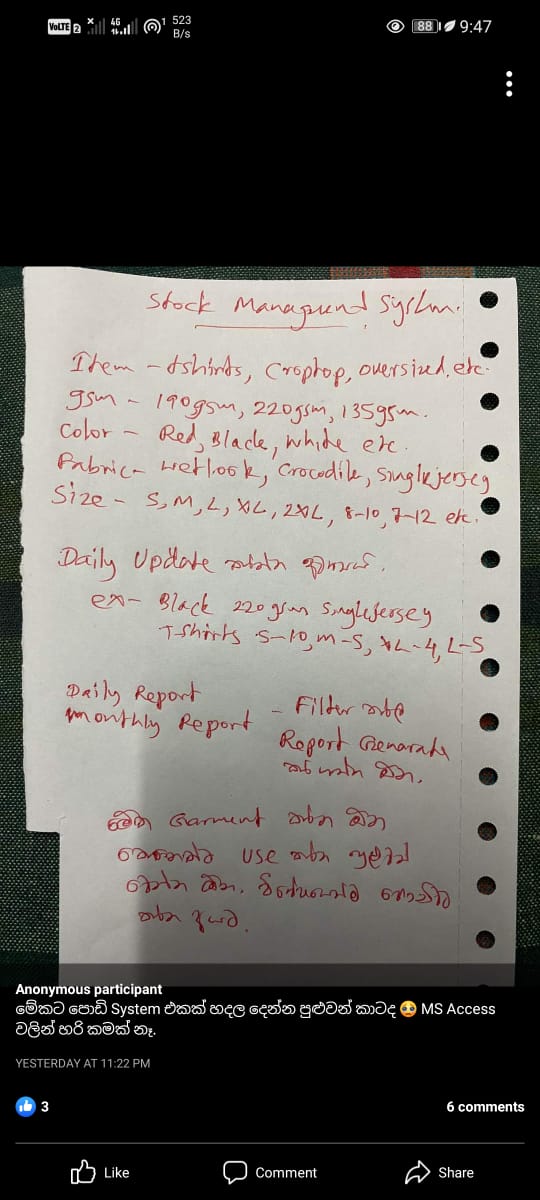 VoLTE 2 4G 1 523 B/s 88 9:47
Stock Managment System.
Item - tshirts, Croptop, oversized, etc.
gsm - 190gsm, 220gsm, 135gsm.
Color - Red, Black, white etc.
Fabric - wetlook, Crocodile, Singlejersey
Size - S, M, L, XL, 2XL, 8-10, 7-12 etc.
Daily Update කරන්න
ex- Black 220gsm Singlejersey
Tshirts S-10, M-5, XL-4, L-5
Daily Report
monthly Report - Filter කරල
Report Genarate
කරගන්න ඕන.
මේක Garment කරන ඕන
කෙනෙක්ට use කරන්න පුළුවන්
වෙන්න ඕන. විශේෂයෙන්ම
කරන අයට.
Anonymous participant
මේකට පොඩි System එකක් හදල දෙන්න පුළුවන් කාටද 🥺 MS Access
වලින් හරි කමක් නෑ.
YESTERDAY AT 11:22 PM
3 6 comments
Like Comment Share